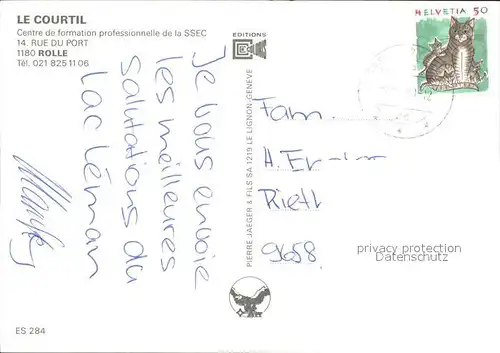 LE COURTIL
Centre de formation professionnelle de la SSEC
14, RUE DU PORT
1180 ROLLE
Tél. 021 825 11 06
Je vous envoie
les meilleures
salutations du
Lac Léman
EDITIONS
PIERRE JAEGER & FILS SA 1219 LE LIGNON-GENEVE
HELVETIA 50
Fam.
H.
9658
privacy protection
Datenschutz
ES 284